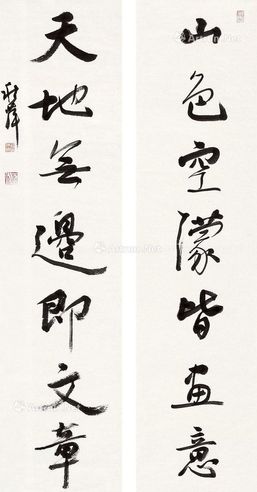 山色空濛皆画意
天地無邊即文章